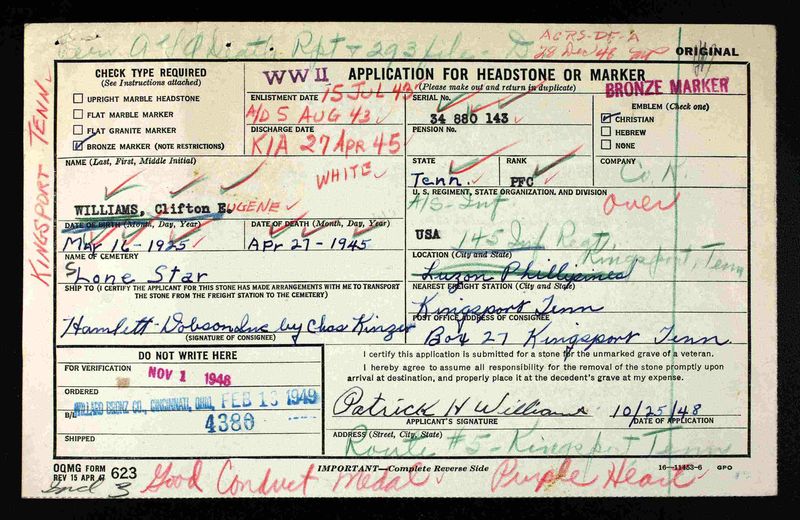 A & Death Rpt + 293 file - D
ACRS-DE-A
28 Dec 48
ORIGINAL
KINGSPORT TENN.
CHECK TYPE REQUIRED
(See Instructions attached)
UPRIGHT MARBLE HEADSTONE
FLAT MARBLE MARKER
FLAT GRANITE MARKER
BRONZE MARKER (NOTE RESTRICTIONS)
WW II
APPLICATION FOR HEADSTONE OR MARKER
(Please make out and return in duplicate)
BRONZE MARKER
ENLISTMENT DATE 15 JUL 43
A/D 5 AUG 43
DISCHARGE DATE
KIA 27 APR 45
SERIAL No.
34 880 143
PENSION No.
EMBLEM (Check one)
CHRISTIAN
HEBREW
NONE
NAME (Last, First, Middle Initial)
WHITE
WILLIAMS, Clifton E. UGENE
STATE
Tenn.
RANK
PFC
COMPANY
Co. K.
U. S. REGIMENT, STATE ORGANIZATION, AND DIVISION
A/S-Inf
over
USA
145 Inf Regt.
DATE OF BIRTH (Month, Day, Year)
Mar 16-1925
DATE OF DEATH (Month, Day, Year)
Apr 27-1945
NAME OF CEMETERY
Lone Star
LOCATION (City and State)
Kingsport, Tenn
Luzon Phillipines
SHIP TO (I CERTIFY THE APPLICANT FOR THIS STONE HAS MADE ARRANGEMENTS WITH ME TO TRANSPORT
THE STONE FROM THE FREIGHT STATION TO THE CEMETERY)
Hamlett-Dobson Inc by Chas Kinzer
(SIGNATURE OF CONSIGNEE)
NEAREST FREIGHT STATION (City and State)
Kingsport Tenn
POST OFFICE ADDRESS OF CONSIGNEE
Box 27 Kingsport Tenn.
DO NOT WRITE HERE
FOR VERIFICATION
NOV 1 1948
ORDERED
B/L
WILLARD BRONZ CO., CINCINNATI, OHIO, FEB 16 1949
4380
SHIPPED
I certify this application is submitted for a stone for the unmarked grave of a veteran.
I hereby agree to assume all responsibility for the removal of the stone promptly upon
arrival at destination, and properly place it at the decedent's grave at my expense.
Patrick H Williams 10/25/48
APPLICANT'S SIGNATURE
DATE OF APPLICATION
ADDRESS (Street, City, State)
Route #5-Kingsport Tenn
OQMG FORM
REV 15 APR 47
623
IMPORTANT—Complete Reverse Side
16—11453-6 GPO
3
Good Conduct Medal
Purple Heart